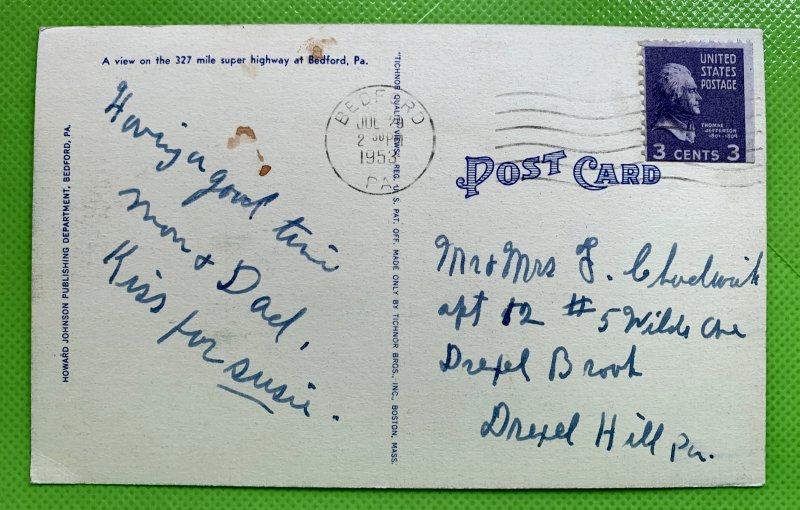 A view on the 327 mile super highway at Bedford, Pa.
Having a good time
mom & Dad,
Kiss for susie.
HOWARD JOHNSON PUBLISHING DEPARTMENT, BEDFORD, PA.
"TICHNOR QUALITY VIEWS," REG. U. S. PAT. OFF. MADE ONLY BY TICHNOR BROS., INC., BOSTON, MASS.
BEDFORD
JUL 29
2 30 PM
1953
PA.
UNITED
STATES
POSTAGE
THOMAS
JEFFERSON
1801-1809
3 CENTS 3
POST CARD
Mr & Mrs J. Chadwick
apt 12 #5 Wilde Ave
Drexel Brook
Drexel Hill Pa.